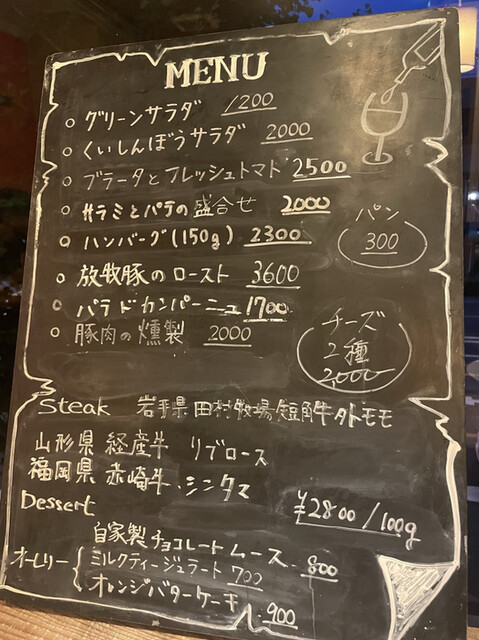 MENU
グリーンサラダ 1200
くいしんぼうサラダ 2000
ブラータとフレッシュトマト 2500
サラミとパテの盛合せ 2000
ハンバーグ(150g) 2300
パン
300
放牧豚のロースト 3600
パテドカンパーニュ 1700
豚肉の燻製 2000
チーズ
2種
2,000
Steak 岩手県田村牧場短角牛外モモ
山形県 経産牛 リブロース
福岡県 赤崎牛・シンタマ
¥2800/100g
Dessert
自家製チョコレートムース・800
オーレリー ミルクティージェラート 700
オレンジバターケーキ 900